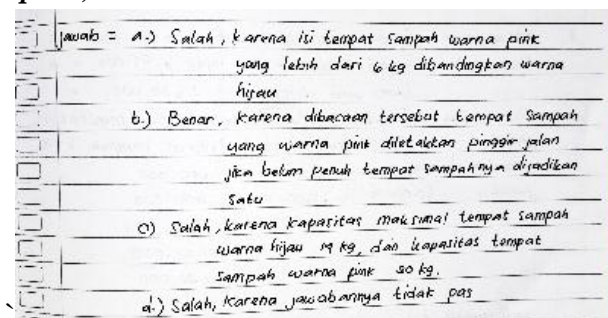 Jawab = a.) Salah, karena isi tempat sampah warna pink
yang lebih dari 6 kg dibandingkan warna
hijau
b.) Benar, karena dibacaan tersebut tempat sampah
yang warna pink diletakkan pinggir jalan
jika belum penuh tempat sampahnya dijadikan
satu
c) Salah, karena kapasitas maksimal tempat sampah
warna hijau 19 kg, dan kapasitas tempat
sampah warna pink 30 kg.
d.) Salah, karena jawabannya tidak pas